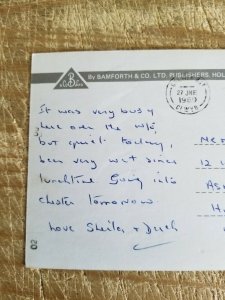 By BAMFORTH & CO. LTD. PUBLISHERS, HOL
27 JNE
It was very busy
here over the w/e,
but quiet today,
been very wet since
lunchtime Going into
chester tomorrow
Love Sheila +
Ne
12
As
H